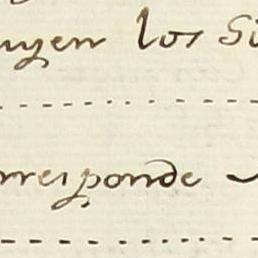 uyen los Si
rresponde